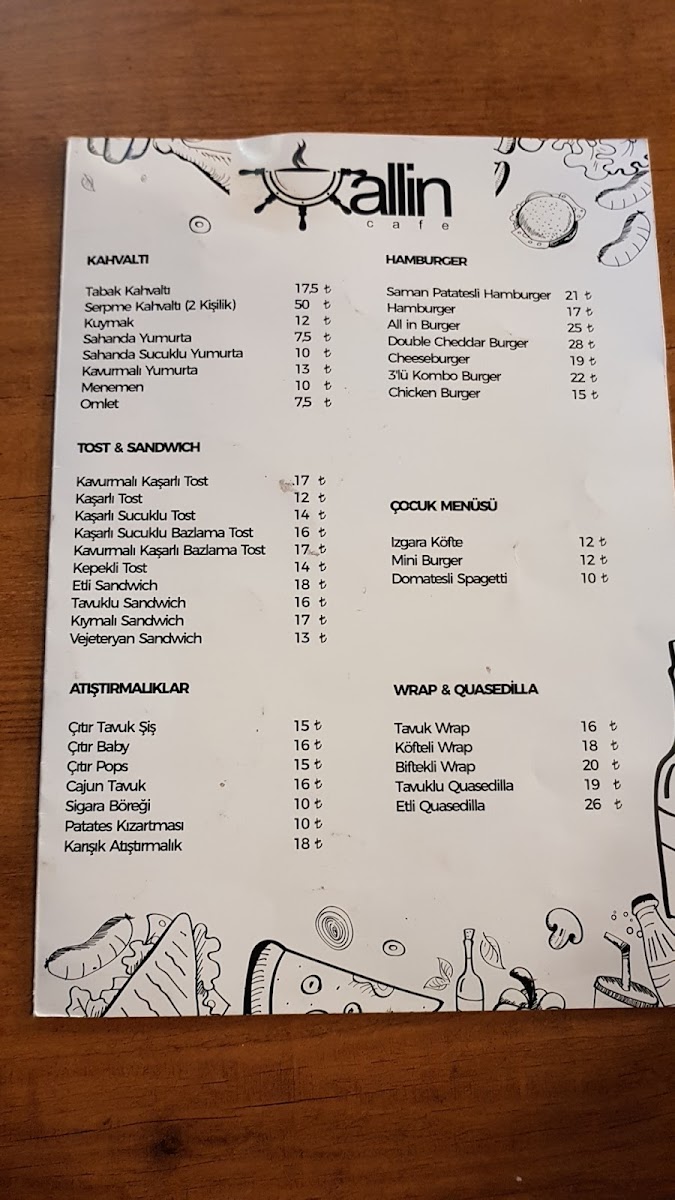 allin
cafe
KAHVALTI
Tabak Kahvaltı 17,5 ₺
Serpme Kahvaltı (2 Kişilik) 50 ₺
Kuymak 12 ₺
Sahanda Yumurta 7,5 ₺
Sahanda Sucuklu Yumurta 10 ₺
Kavurmalı Yumurta 13 ₺
Menemen 10 ₺
Omlet 7,5 ₺
TOST & SANDWICH
Kavurmalı Kaşarlı Tost 17 ₺
Kaşarlı Tost 12 ₺
Kaşarlı Sucuklu Tost 14 ₺
Kaşarlı Sucuklu Bazlama Tost 16 ₺
Kavurmalı Kaşarlı Bazlama Tost 17 ₺
Kepekli Tost 14 ₺
Etli Sandwich 18 ₺
Tavuklu Sandwich 16 ₺
Kıymalı Sandwich 17 ₺
Vejeteryan Sandwich 13 ₺
ATIŞTIRMALIKLAR
Çıtır Tavuk Şiş 15 ₺
Çıtır Baby 16 ₺
Çıtır Pops 15 ₺
Cajun Tavuk 16 ₺
Sigara Böreği 10 ₺
Patates Kızartması 10 ₺
Karışık Atıştırmalık 18 ₺
HAMBURGER
Saman Patatesli Hamburger 21 ₺
Hamburger 17 ₺
All in Burger 25 ₺
Double Cheddar Burger 28 ₺
Cheeseburger 19 ₺
3'lü Kombo Burger 22 ₺
Chicken Burger 15 ₺
ÇOCUK MENÜSÜ
Izgara Köfte 12 ₺
Mini Burger 12 ₺
Domatesli Spagetti 10 ₺
WRAP & QUASEDİLLA
Tavuk Wrap 16 ₺
Köfteli Wrap 18 ₺
Biftekli Wrap 20 ₺
Tavuklu Quasedilla 19 ₺
Etli Quasedilla 26 ₺